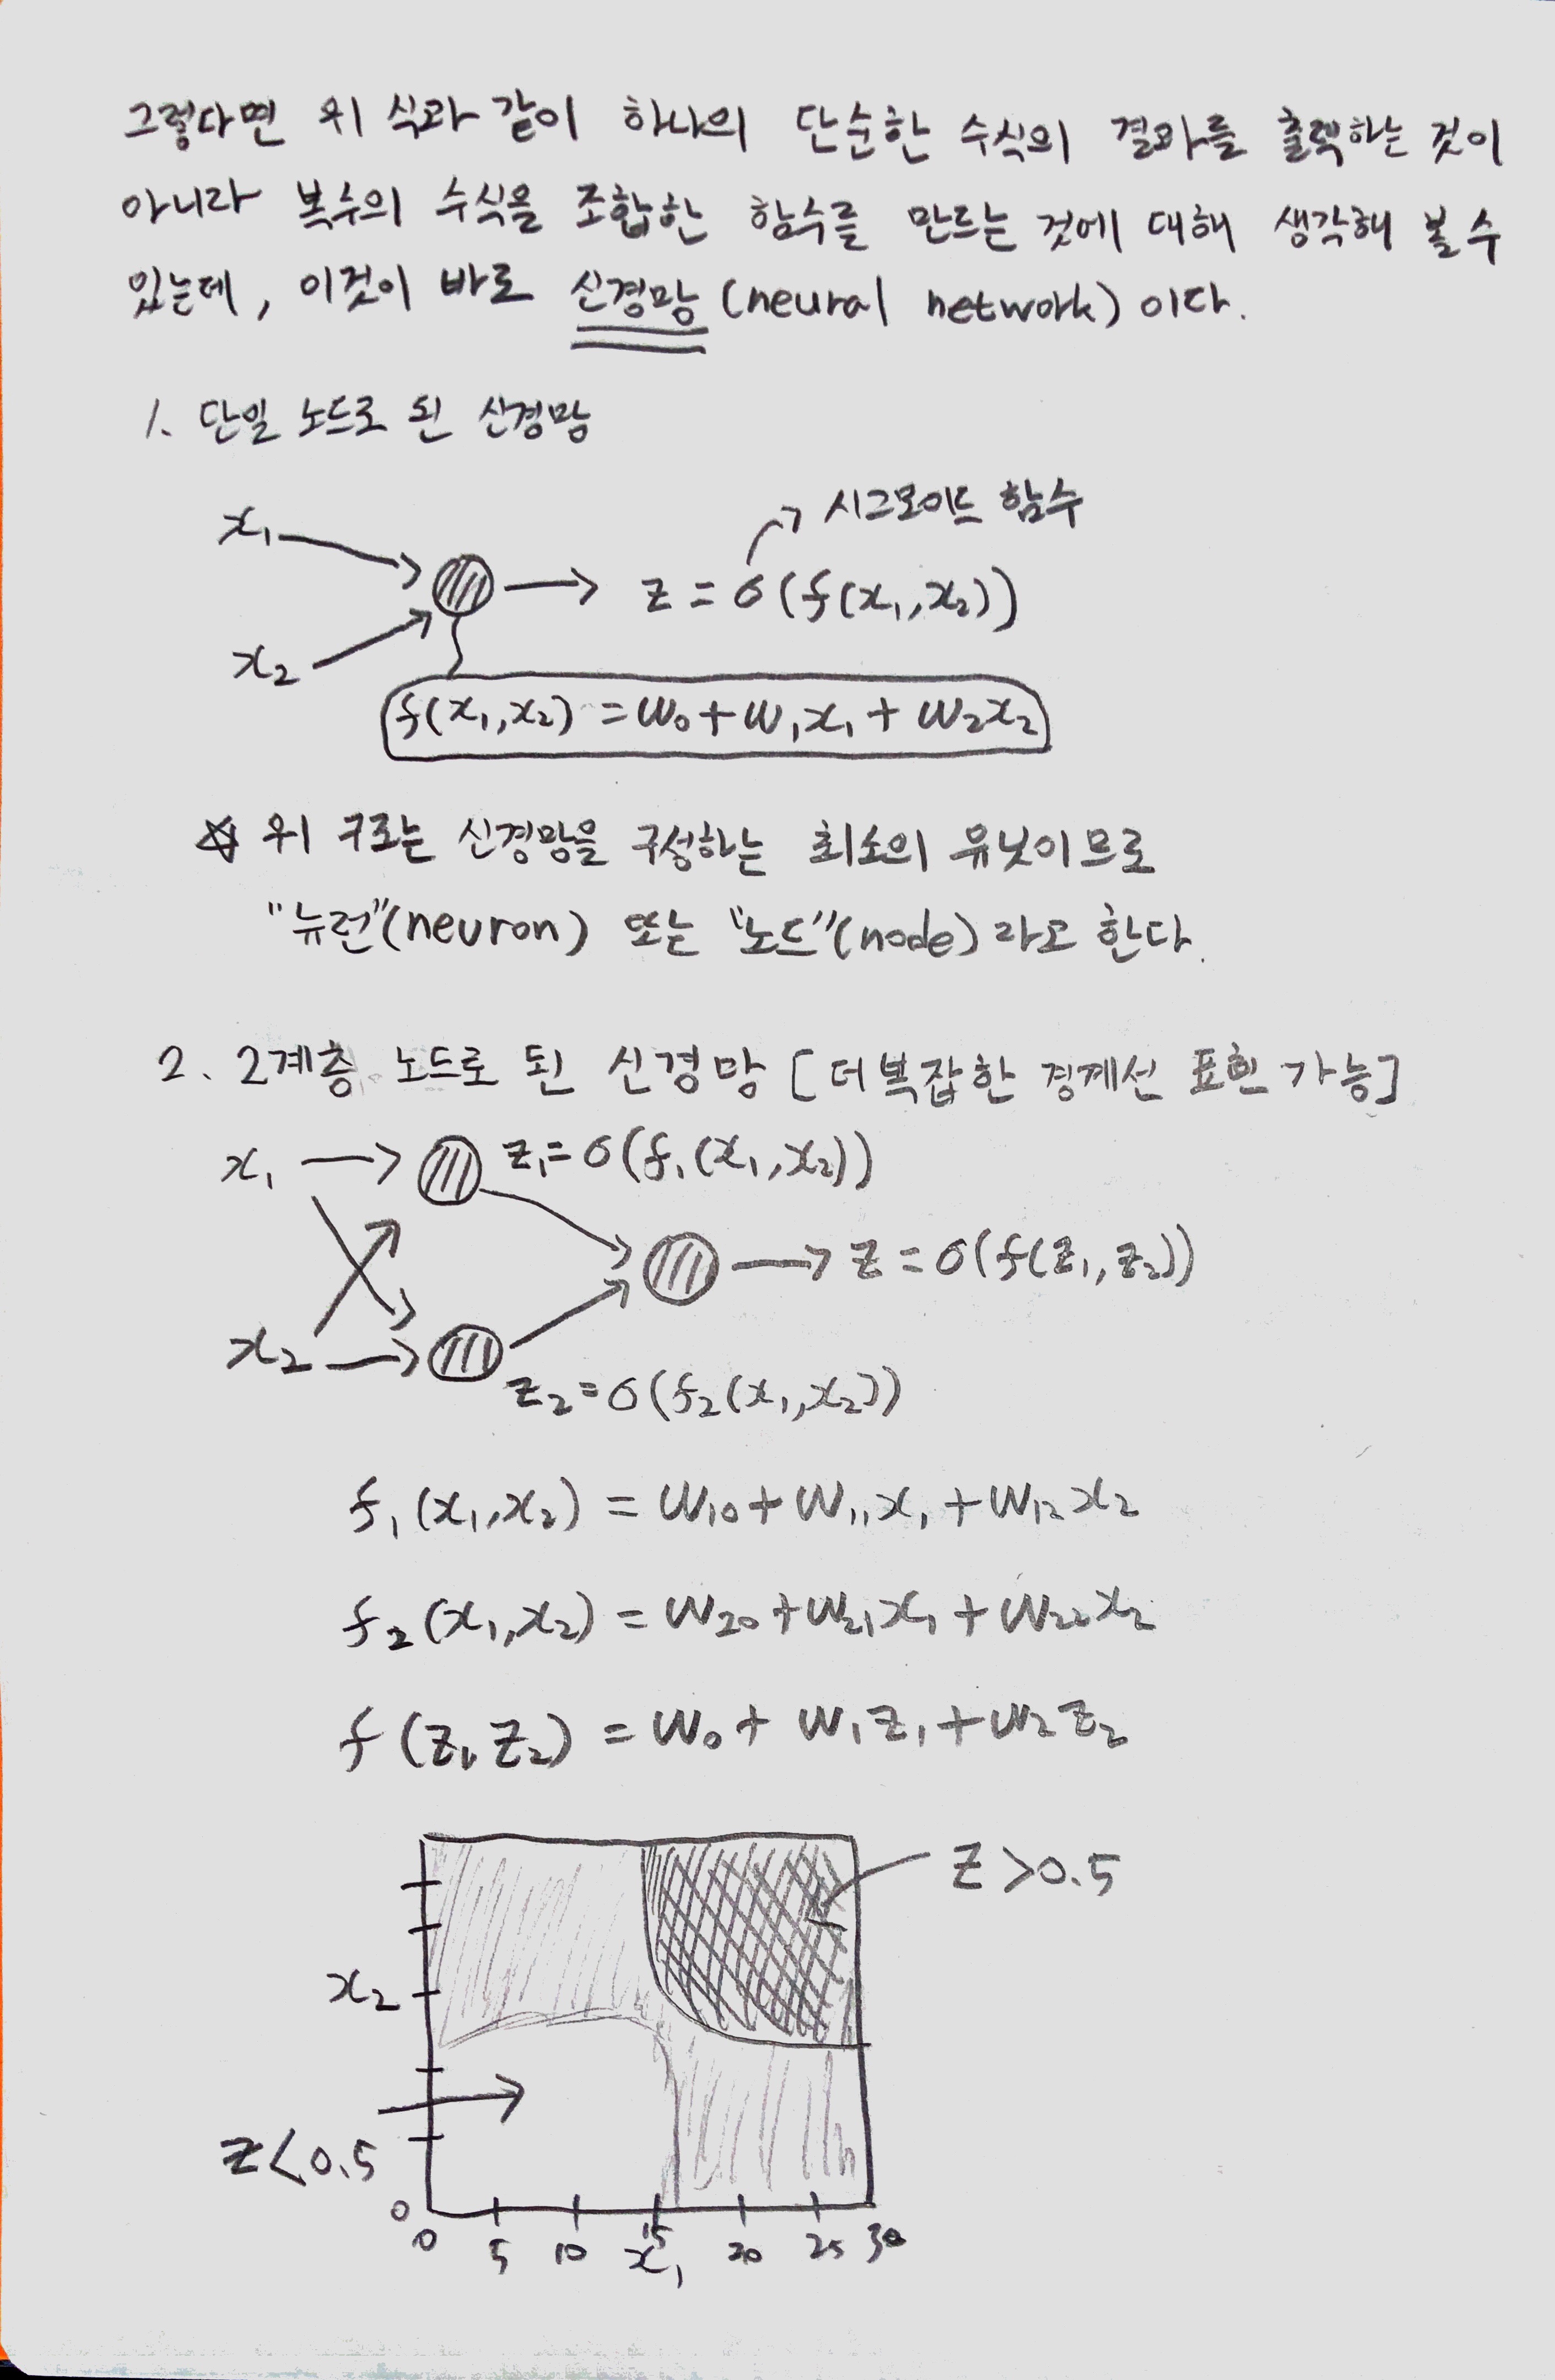 그렇다면 위 식과 같이 하나의 단순한 수식의 결과를 출력하는 것이
아니라 복수의 수식을 조합한 함수를 만드는 것에 대해 생각해 볼 수
있는데, 이것이 바로 신경망 (neural network) 이다.
1. 단일 노드로 된 신경망
시그모이드 함수
x₁
z = σ(f(x₁,x₂))
x₂
f(x₁,x₂) = w₀ + w₁x₁ + w₂x₂
☆ 위 구조는 신경망을 구성하는 최소의 유닛이므로
"뉴런"(neuron) 또는 "노드"(node) 라고 한다.
2. 2계층 노드로 된 신경망 [더 복잡한 경계선 표현 가능]
x₁ z₁ = σ(f₁(x₁,x₂))
z = σ(f(z₁,z₂))
x₂
z₂ = σ(f₂(x₁,x₂))
f₁(x₁,x₂) = w₁₀ + w₁₁x₁ + w₁₂x₂
f₂(x₁,x₂) = w₂₀ + w₂₁x₁ + w₂₂x₂
f(z₁,z₂) = w₀ + w₁z₁ + w₂z₂
z > 0.5
x₂
z < 0.5
0
0 5 10 15 20 25 30
x₁